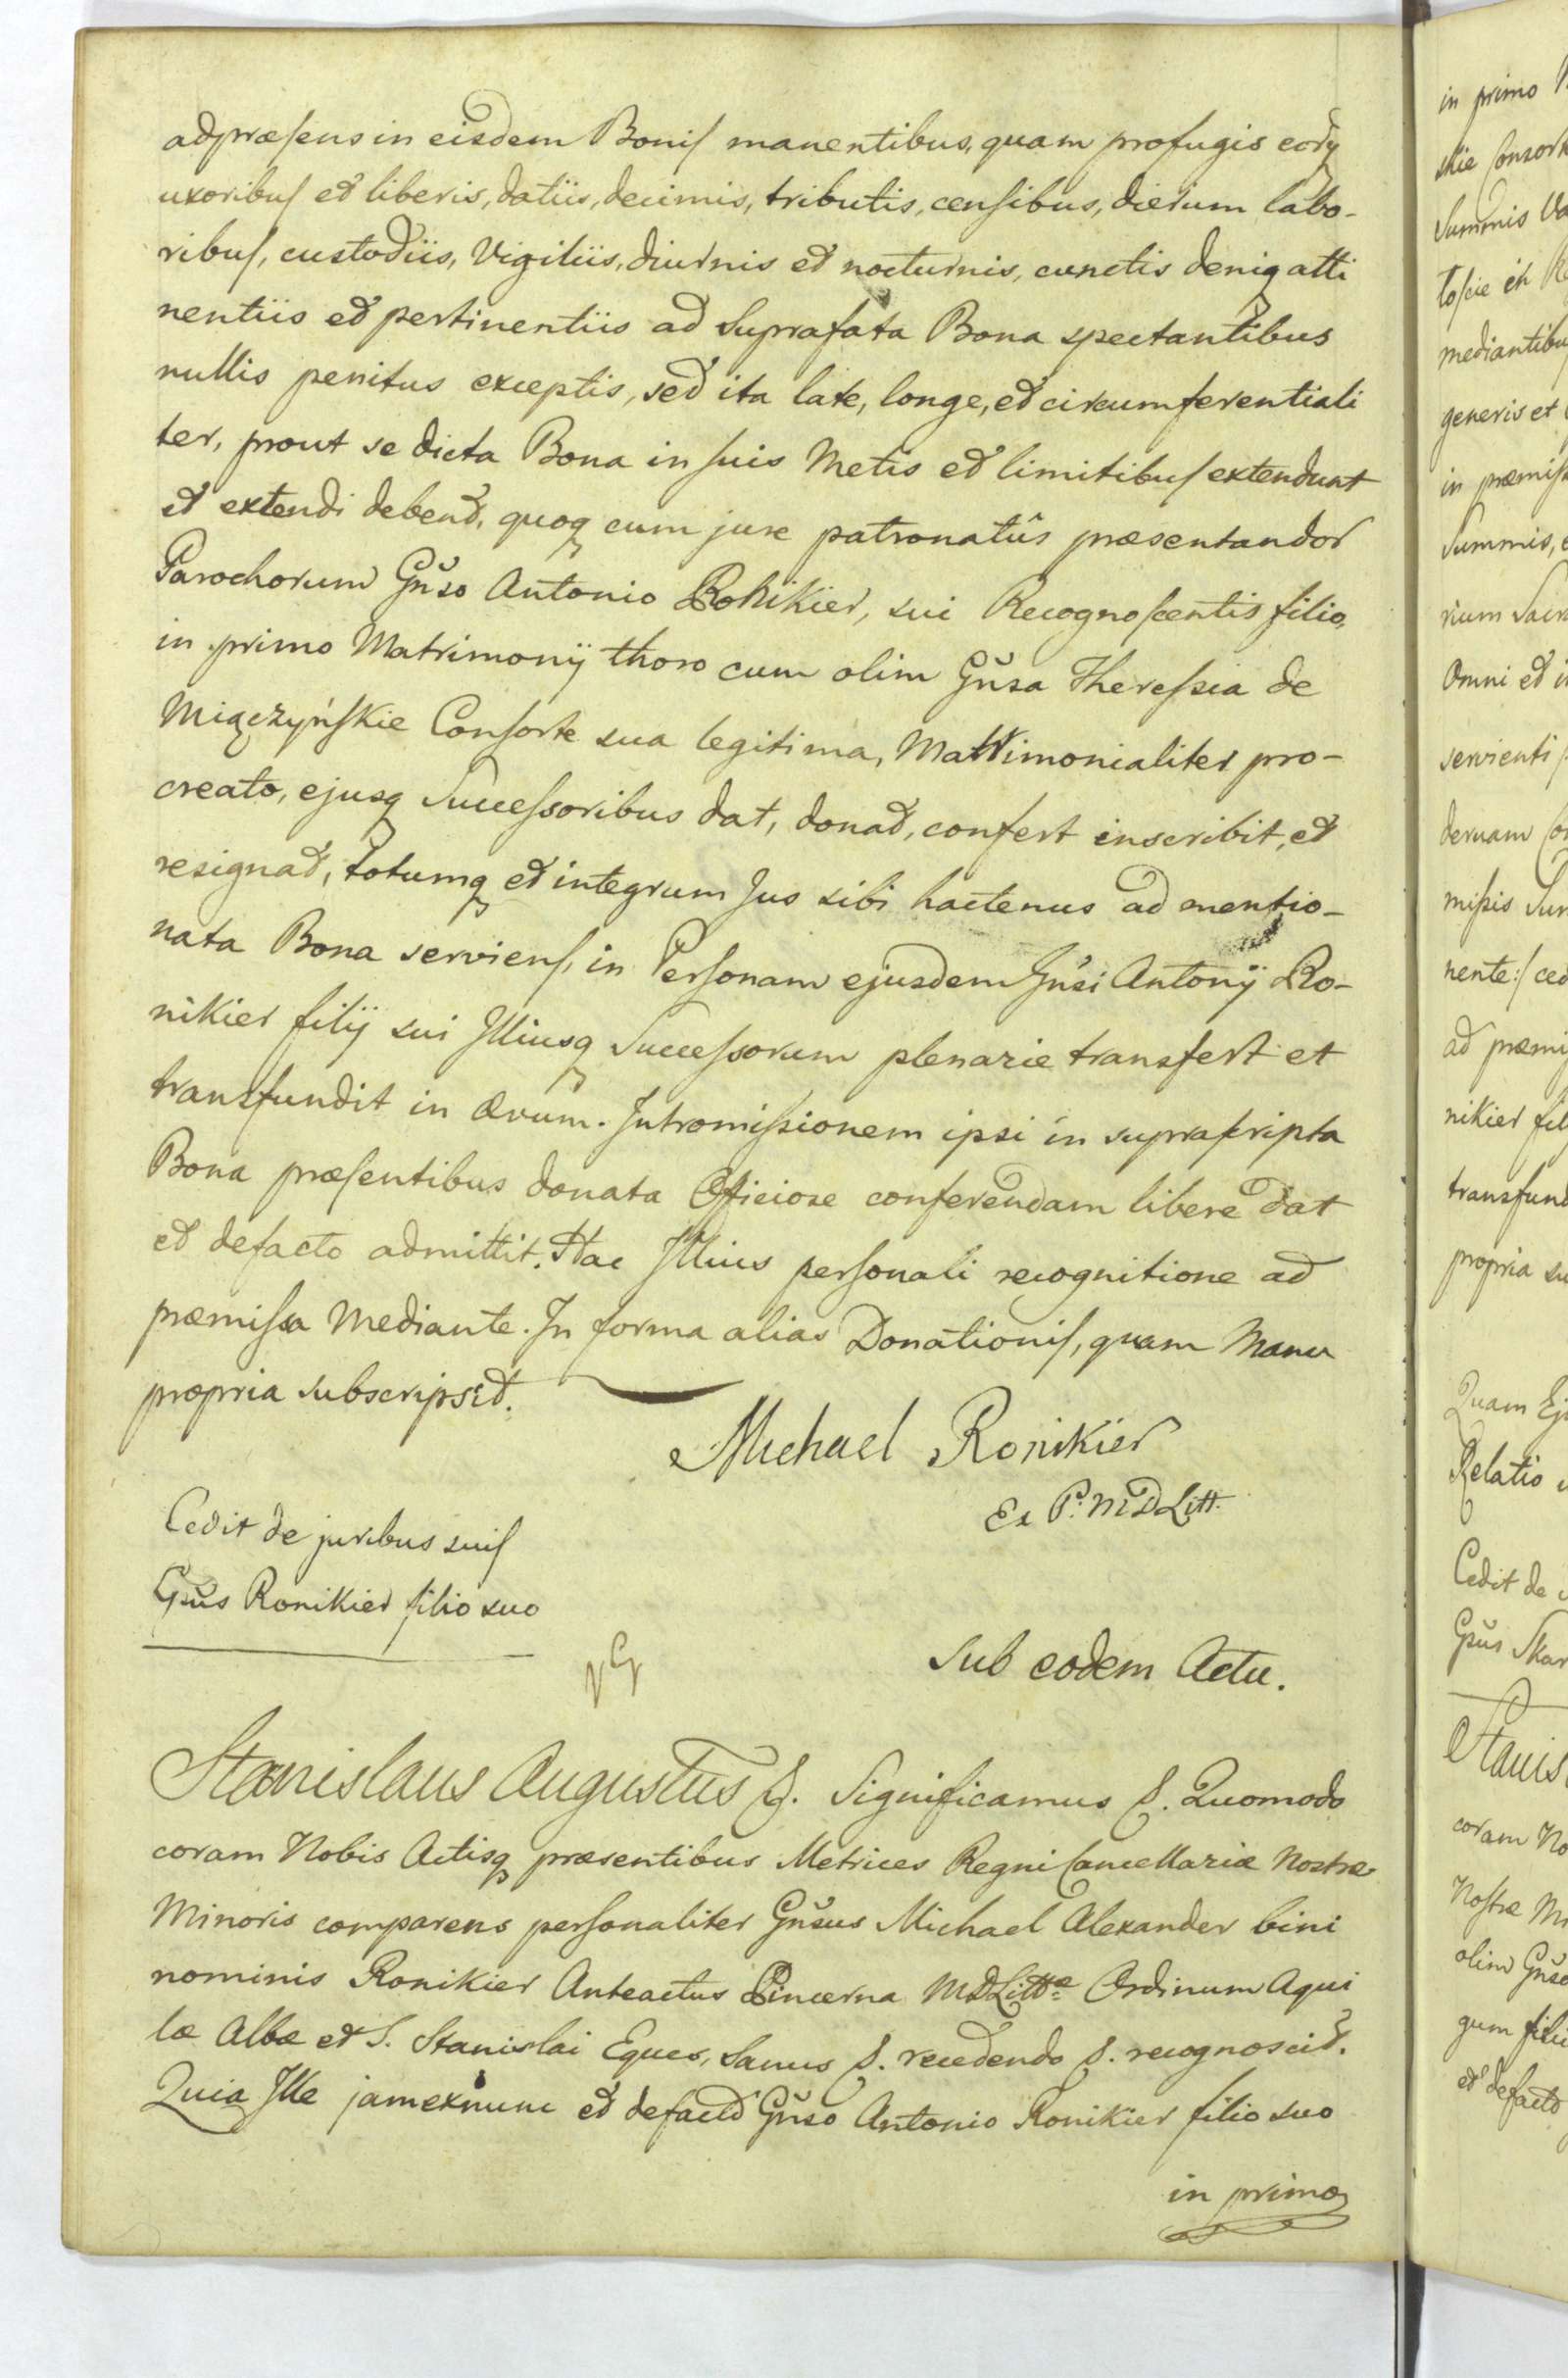 adpræsens in eisdem Bonis manentibus, quam profugis eorꝫ
uxoribus et liberis, datiis, decimis, tributis, censibus, dierum labo-
ribus, custodiis, Vigiliis, diurnis et nocturnis, cunctis deniqꝫ atti
nentiis et pertinentiis ad Suprafata Bona spectantibus
nullis penitus exceptis, sed ita late, longe, et circumferentiali
ter, prout se dicta Bona in suis Metis et limitibus extendunt
et extendi debent, quoqꝫ cum jure patronatûs præsentandor
Parochorum Gn̆so Antonio Ronikier, sui Recognoscentis filio,
in primo Matrimonij thoro cum olim Gn̆sa Theressia de
Miączyńskie Consorte sua legitima, Matrimonialiter pro-
creato, ejusqꝫ Successoribus dat, donat, confert inscribit, et
resignat, totumqꝫ et integrum Jus sibi hactenus ad mentio-
nata Bona serviens, in Personam ejusdem Gn̆si Antonij Ro-
nikier filij sui Illiusqꝫ Successorum plenarie transfert et
transfundit in ævum. Intromissionem ipsi in suprascripta
Bona præsentibus donata Officiose conferendam libere dat
et defacto admittit. Hac Illius personali recognitione ad
præmissa Mediante. In forma alias Donationis, quam Manu
propria subscripsit.
Michael Ronikier
Ex P. M D Litt.
Cedit de juribus suis
Gn̆s Ronikier filio suo
Sub eodem Actu.
Stanislaus Augustus &. Significamus &. Quomodo
coram Nobis Actisqꝫ præsentibus Metrices Regni Cancellariæ Nostræ
Minoris comparens personaliter Gn̆sus Michael Alexander bini
nominis Ronikier Anteactus Pincerna MDLittæ Ordinum Aqui
læ Albæ et S. Stanislai Eques, Sanus &. recedendo &. recognoscit.
Quia Ille jamexnunc et defacto Gn̆so Antonio Ronikier filio suo
in primo
in primo
skie Consort
Summis
toscie
mediantibus
generis et
in præmiss
Summis,
rium
Omni et
servienti
missis
nente:/ ced
ad præmi
nikier fil
transfund
propria su
Quam Ej
Relatio
Cedit de
Gn̆s Skar
Stanis
coram No
Nostræ Mi
olim Gn̆so
gum fili
et defacto